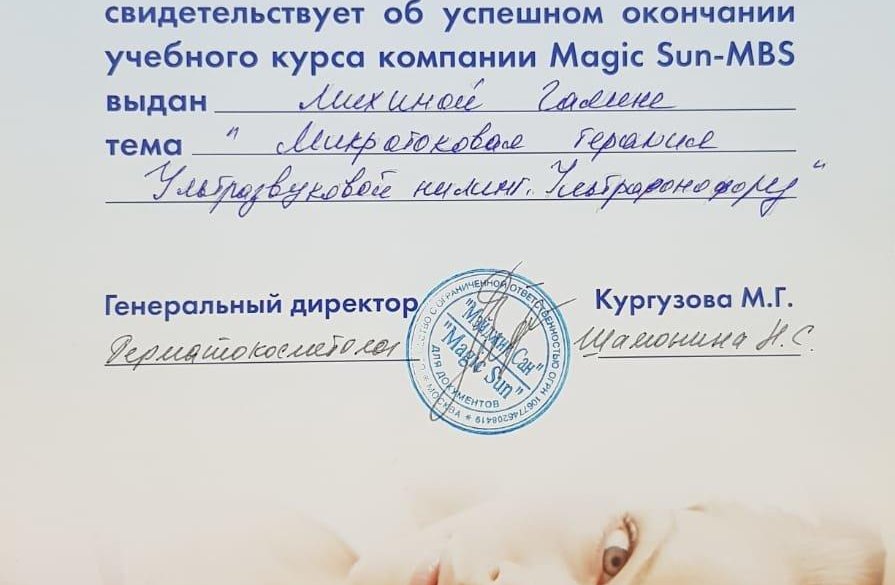 свидетельствует об успешном окончании
учебного курса компании Magic Sun-MBS
выдан Михиной Галине
тема " Микротоковая терапия
Ультразвуковой пилинг. Ультрафонофорез "
Генеральный директор Кургузова М.Г.
Дерматокосметолог Шамонина Н.С.
ОБЩЕСТВО С ОГРАНИЧЕННОЙ ОТВЕТСТВЕННОСТЬЮ ОГРН 1067746208419
"Мэджик Сан"
"Magic Sun"
ДЛЯ ДОКУМЕНТОВ
* МОСКВА *